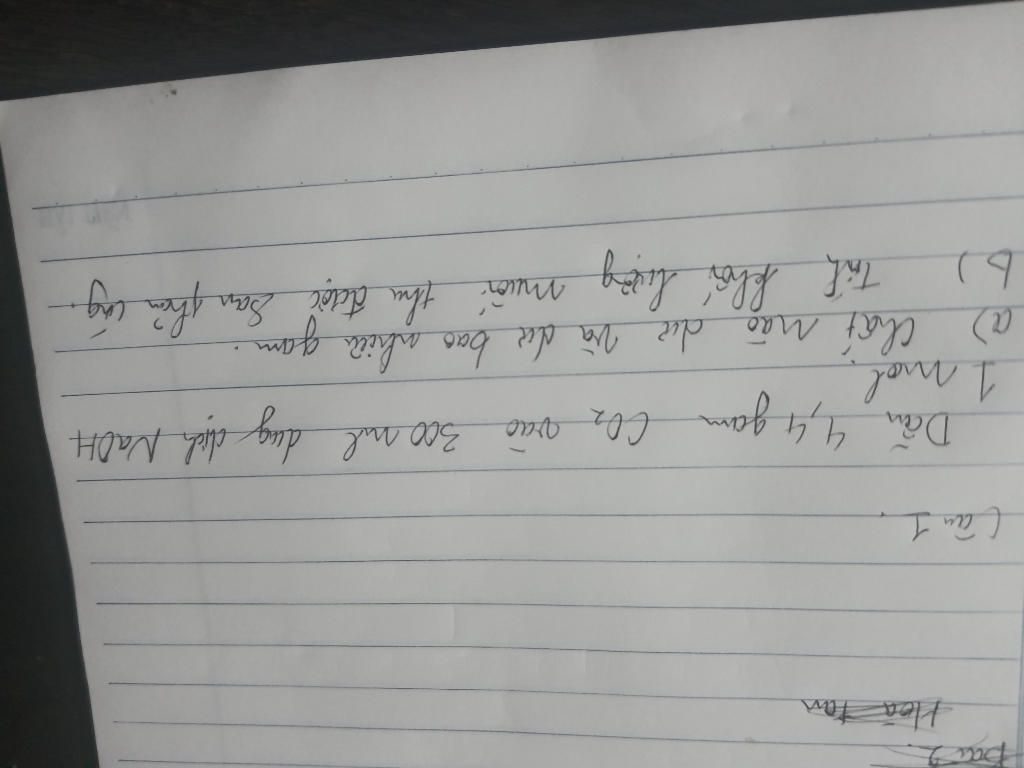 Bài 2.
Hoà tan
Câu 1.
Dẫn 4,4 gam CO2 vào 300 ml dug dịch NaOH
1 mol.
a) Chất nào dư và dư bao nhiêu gam.
b) Tính khối lượng muối thu được sau phản ứng.